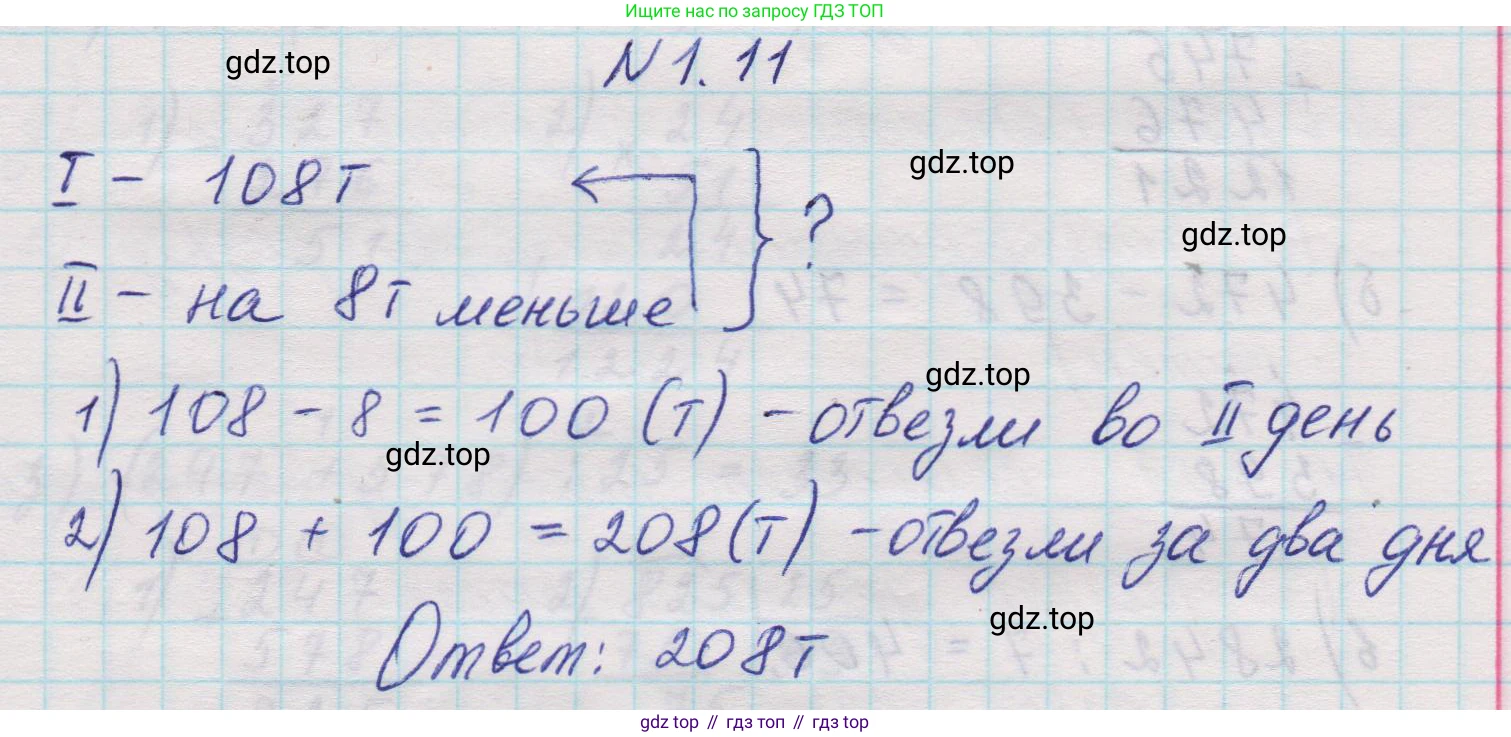 Ищите нас по запросу ГДЗ ТОП
gdz.top
N 1. 11
I - 108 т
gdz.top
?
gdz.top
II - на 8 т меньше
gdz.top
1) 108 - 8 = 100 (т) - отвезли во II день
gdz.top
2) 108 + 100 = 208 (т) - отвезли за два дня
gdz.top
Ответ: 208 т
gdz top // гдз топ // гдз top